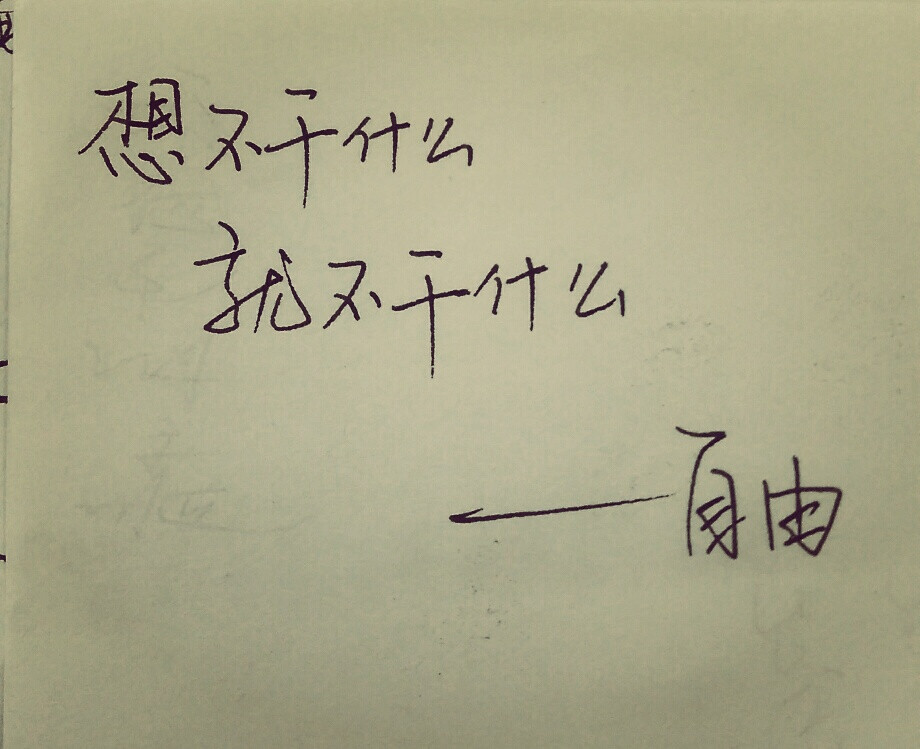 想不干什么
就不干什么
——自由